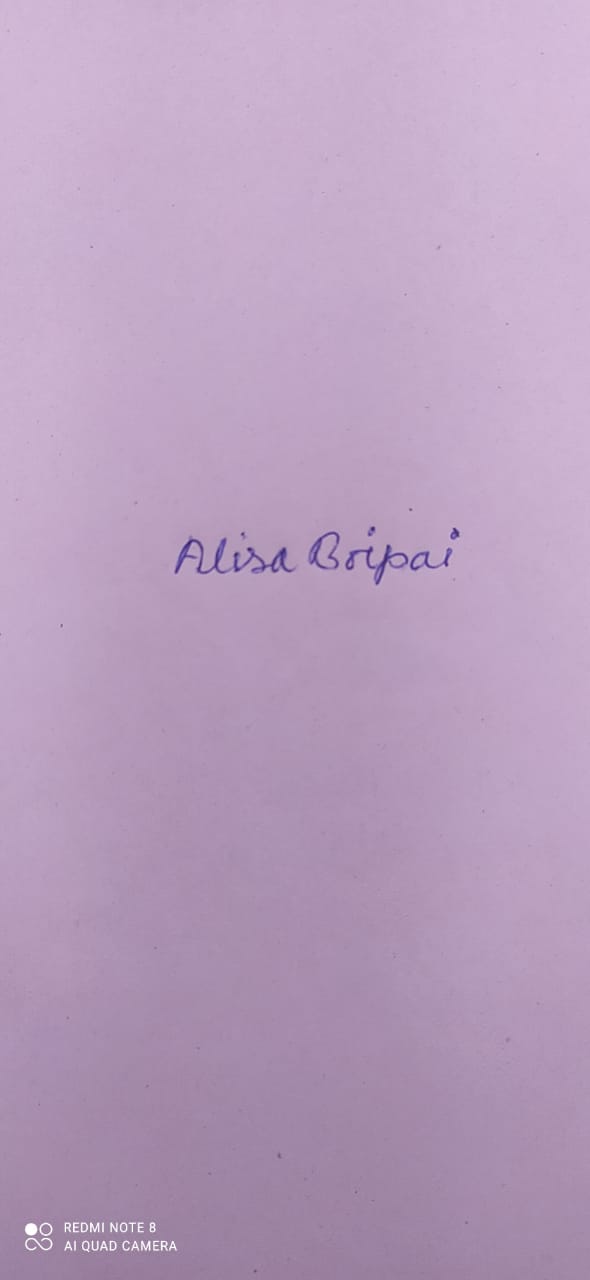 Alisa Boipai
REDMI NOTE 8
AI QUAD CAMERA